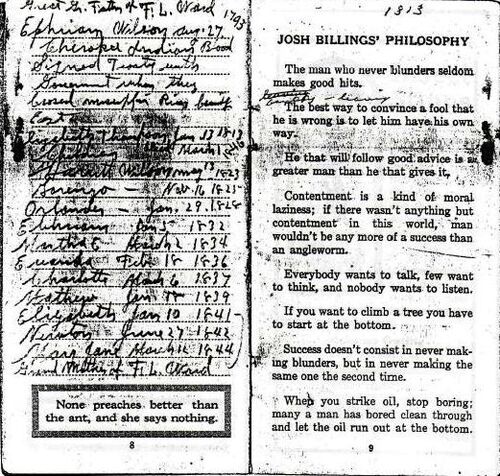 Great G. Father of F. L. Ward
Ephriam Wilson Aug. 27. 1793
Cherokee Indian Blood
Signed Treaty with
Government when they
Crossed River
East
Elizabeth Thompson Jan 13 1813
March 1
Garrett Wilson May 1823
Lorenzo — Nov. 16 1825
Orlander — Jan. 29. 1828
Ephriam Jan 5 1832
Martha E. March 2 1834
Feb 18 1836
Charlotte March 6 1837
Mathew Jan 18 1839
Elizabeth Jan 10 1841
Newton June 27 1842
Mary Jane March 12 1844
Grand Mother of F. L. Ward
None preaches better than
the ant, and she says nothing.
8
1813
JOSH BILLINGS' PHILOSOPHY
The man who never blunders seldom
makes good hits.
The best way to convince a fool that
he is wrong is to let him have his own
way.
He that will follow good advice is a
greater man than he that gives it.
Contentment is a kind of moral
laziness; if there wasn't anything but
contentment in this world, man
wouldn't be any more of a success than
an angleworm.
Everybody wants to talk, few want
to think, and nobody wants to listen.
If you want to climb a tree you have
to start at the bottom.
Success doesn't consist in never mak-
ing blunders, but in never making the
same one the second time.
When you strike oil, stop boring;
many a man has bored clean through
and let the oil run out at the bottom.
9